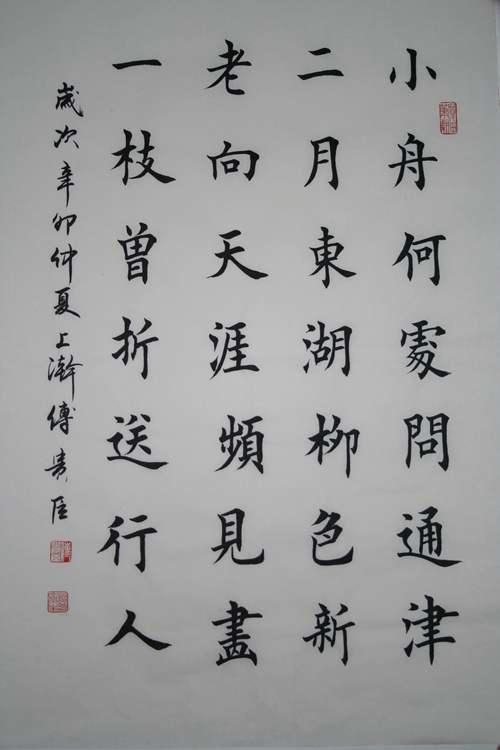 小舟何處問通津
二月東湖柳色新
老向天涯頻見畫
一枝曾折送行人
歲次辛卯仲夏上澣傅貴臣